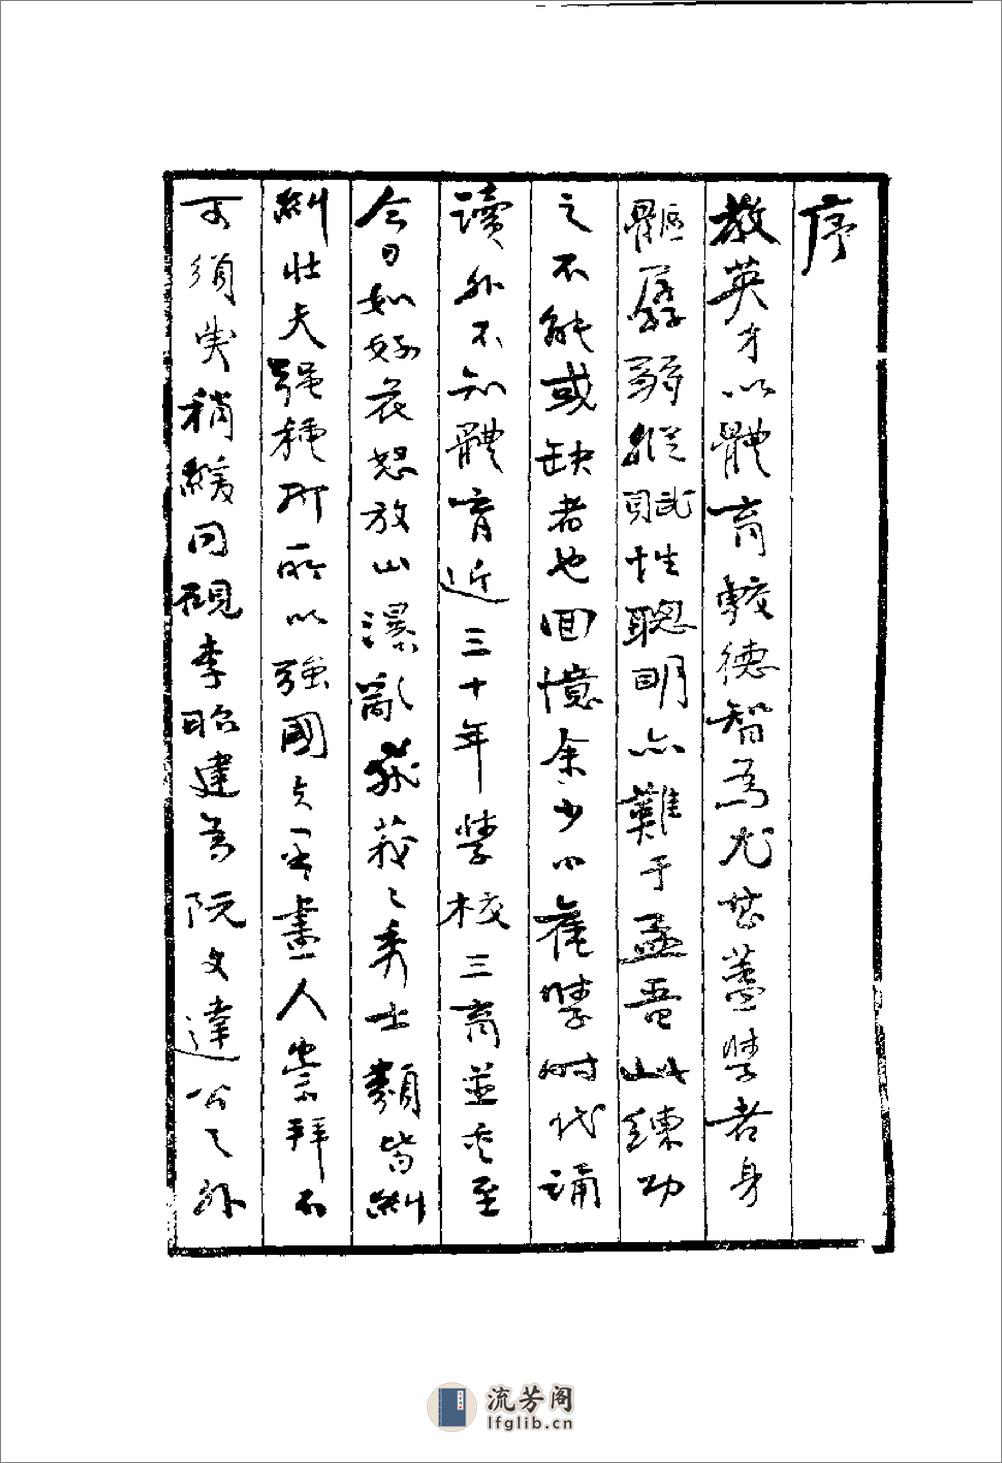 序
教英才以體育較德智為尤甚蓋學者身
軀孱弱縱賦性聰明亦難于孟晉此鍊功
之不能或缺者也回憶余少小舊學時代誦
讀外不知體育近三十年學校三育並重至
今日如好花怒放山瀑亂飛莪莪秀士類皆糾
糾壯夫強種所以強國人崇拜不
可須臾稍緩同硯李昭建為阮文達公之外
流芳阁
lfglib.cn